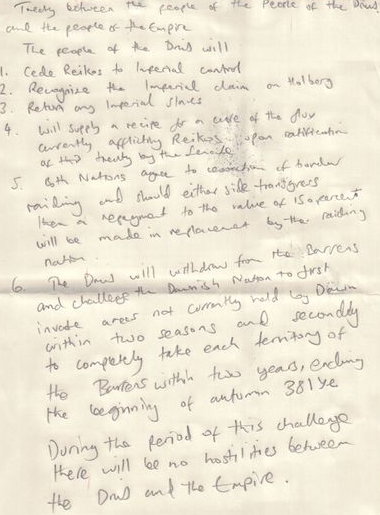 Treaty between the people of the People of the Druj
and the people of the Empire
The people of the Druj will
1. Cede Reikos to Imperial control
2. Recognise the Imperial claim on Holberg
3. Return any Imperial slaves
4. Will supply a recipe for a cure of the flux
currently afflicting Reikos upon ratification
of this treaty by the Senate
5. Both Nations agree to cessation of border
raiding and should either side transgress
then a repayment to the value of 150 percent
will be made in replacement by the raiding
nation
6. The Druj will withdraw from the Barrens
and challenge the Dawnish Nation to first
invade areas not currently held by Dawn
within two seasons and secondly
to completely take each territory of
the Barrens within two years, ending
the beginning of autumn 381YE
During the period of this challenge
there will be no hostilities between
the Druj and the Empire.